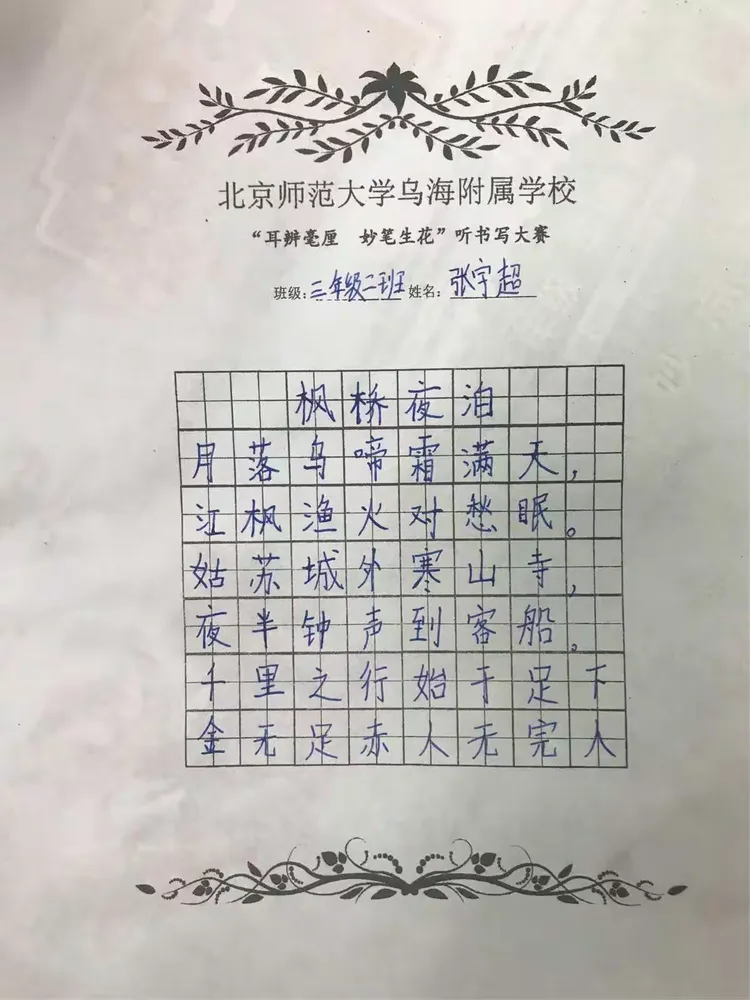 北京师范大学乌海附属学校
“耳辨毫厘 妙笔生花”听书写大赛
班级:三年级二班 姓名:张宇超
枫桥夜泊
月落乌啼霜满天,
江枫渔火对愁眠。
姑苏城外寒山寺,
夜半钟声到客船。
千里之行始于足下
金无足赤人无完人